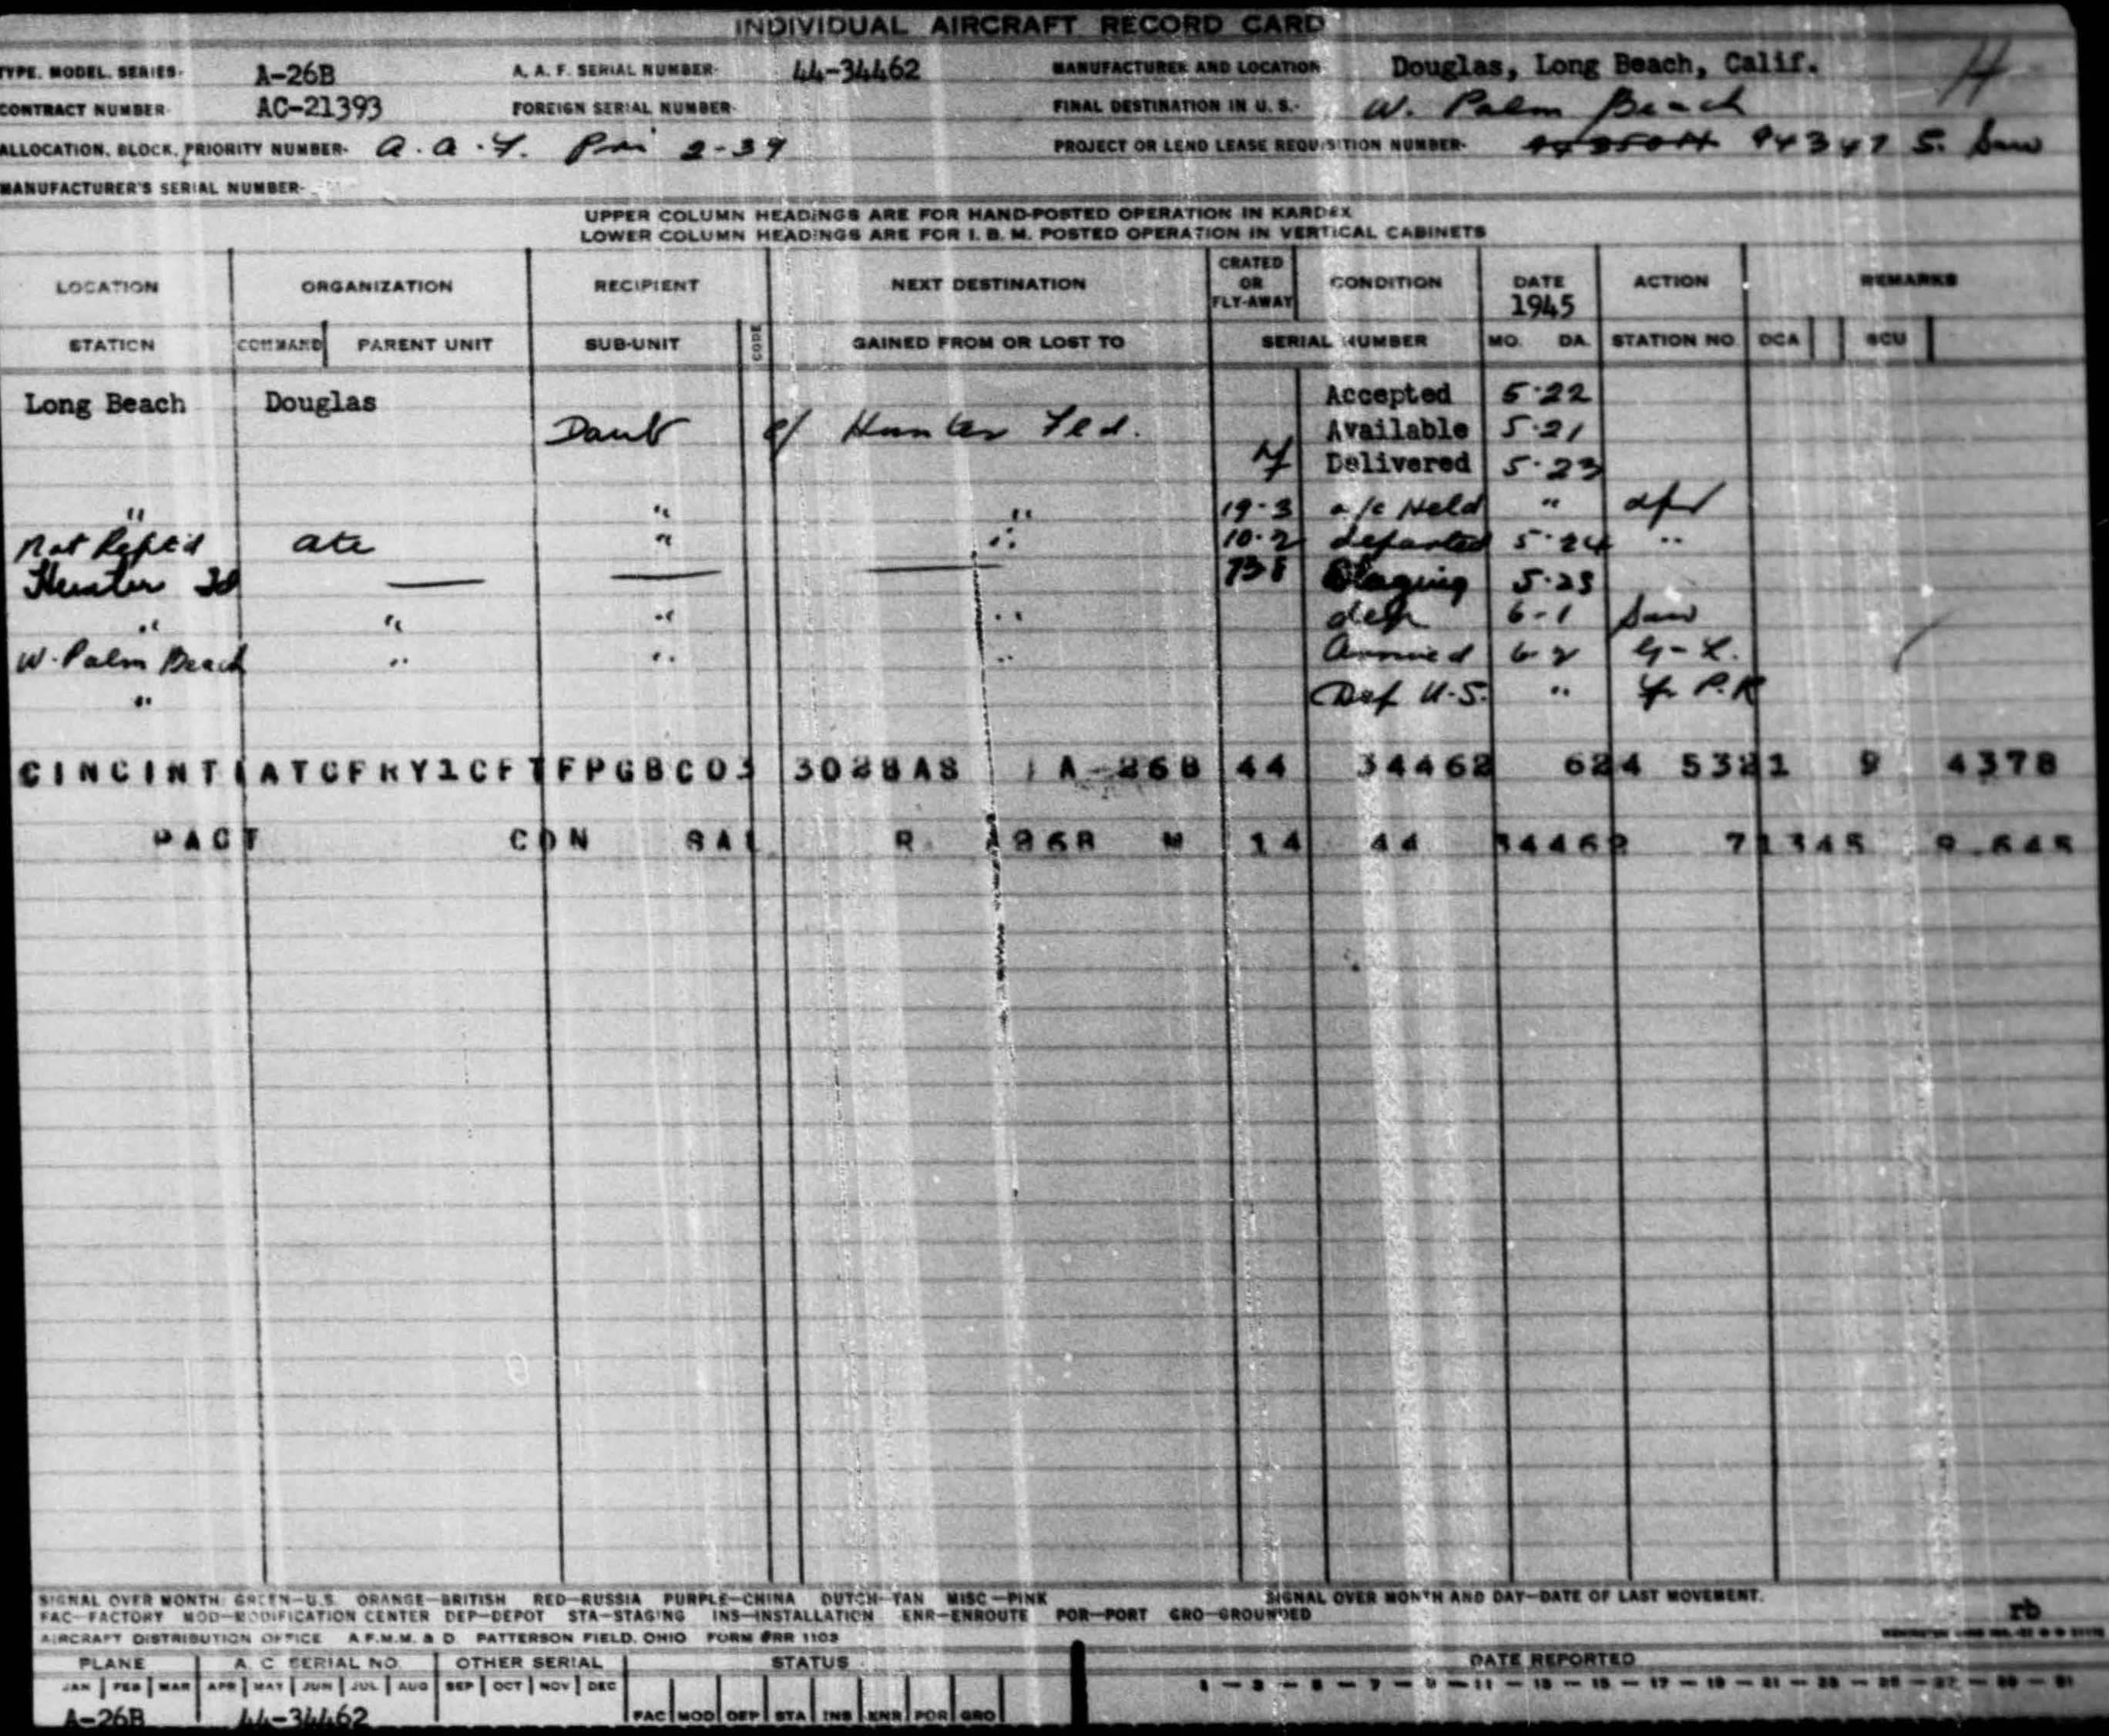 INDIVIDUAL AIRCRAFT RECORD CARD
TYPE, MODEL, SERIES- A-26B A. A. F. SERIAL NUMBER- 44-34462 MANUFACTURER AND LOCATION Douglas, Long Beach, Calif. H
CONTRACT NUMBER- AC-21393 FOREIGN SERIAL NUMBER- FINAL DESTINATION IN U. S.- W. Palm Beach
ALLOCATION, BLOCK, PRIORITY NUMBER- a.a.F. Pri 2-39 PROJECT OR LEND LEASE REQUISITION NUMBER- 94347 S.
MANUFACTURER'S SERIAL NUMBER-
UPPER COLUMN HEADINGS ARE FOR HAND-POSTED OPERATION IN KARDEX
LOWER COLUMN HEADINGS ARE FOR I. B. M. POSTED OPERATION IN VERTICAL CABINETS
LOCATION ORGANIZATION RECIPIENT NEXT DESTINATION CRATED OR FLY-AWAY CONDITION DATE 1945 ACTION REMARKS
STATION COMMAND PARENT UNIT SUB-UNIT CODE GAINED FROM OR LOST TO SERIAL NUMBER MO. DA. STATION NO. OCA SCU
Long Beach Douglas Accepted 5-22
Hunter Fld. Available 5-21
Delivered 5-23
" " " 19-3 a/c Held "
Not Rept'd atc " " 10-2 departed 5-24 "
Hunter Staging 5-25
" " " " dep 6-1
W. Palm Beach " " " Arrived 6-2
" Dep U.S. "
CINCINTIATCFRY1CFTFPGBC03 3028AS A-26B 44 34462 624 5321 9 4378
PACT CON SAL R A26B M 14 44 34462 71345 9 645
SIGNAL OVER MONTH GREEN-U.S. ORANGE-BRITISH RED-RUSSIA PURPLE-CHINA DUTCH-TAN MISC-PINK SIGNAL OVER MONTH AND DAY-DATE OF LAST MOVEMENT.
FAC-FACTORY MOD-MODIFICATION CENTER DEP-DEPOT STA-STAGING INS-INSTALLATION ENR-ENROUTE POR-PORT GRO-GROUNDED
rb
AIRCRAFT DISTRIBUTION OFFICE A.F.M.M. & D. PATTERSON FIELD, OHIO FORM #RR 1103
PLANE A C SERIAL NO. OTHER SERIAL STATUS DATE REPORTED
JAN FEB MAR APR MAY JUN JUL AUG SEP OCT NOV DEC 1 - 3 - 5 - 7 - 9 - 11 - 13 - 15 - 17 - 19 - 21 - 23 - 25 - 27 - 29 - 31
A-26B 44-34462 FAC MOD DEP STA INS ENR POR GRO